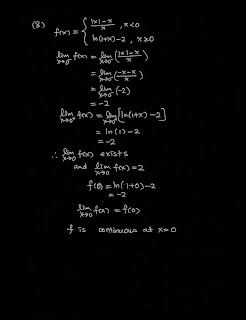 (8) f(x) = { |x|-x / x , x<0
ln(1+x)-2 , x≥0
lim x→0⁻ f(x) = lim x→0⁻ (|x|-x / x)
= lim x→0⁻ (-x-x / x)
= lim x→0⁻ (-2)
= -2
lim x→0⁺ f(x) = lim x→0⁺ [ln(1+x)-2]
= ln(1)-2
= -2
∴ lim x→0 f(x) exists
and lim x→0 f(x) = 2
f(0) = ln(1+0)-2
= -2
lim x→0 f(x) = f(0)
f is continuous at x=0